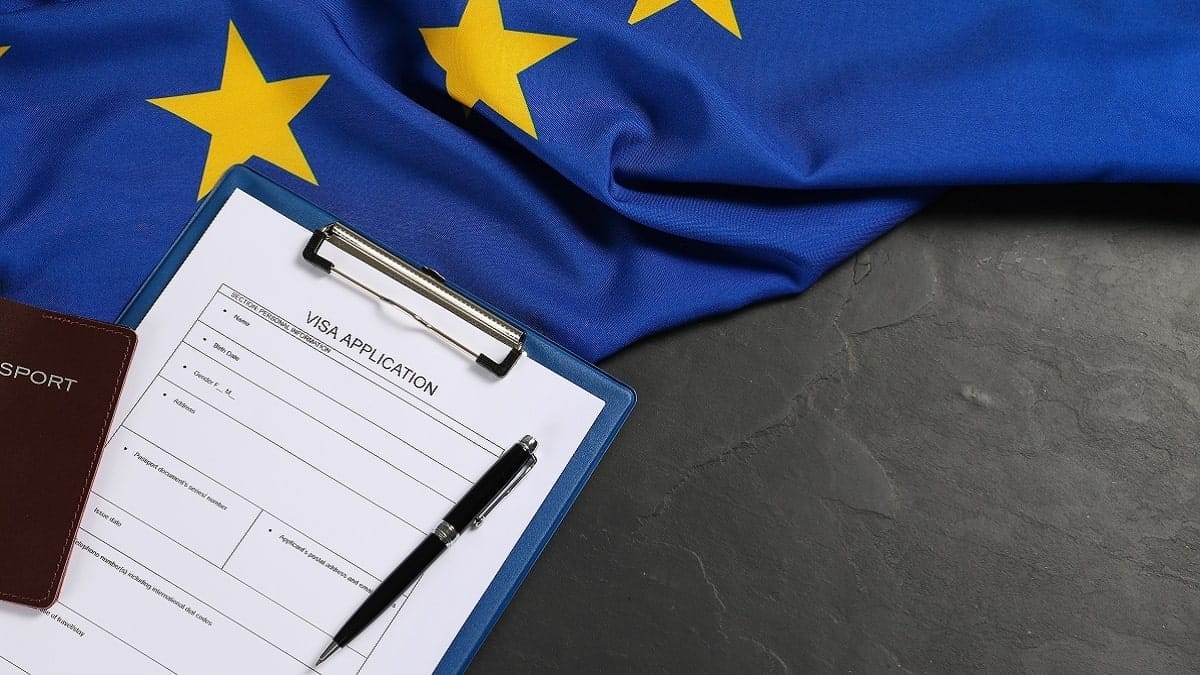 VISA APPLICATION
SECTION: PERSONAL INFORMATION
Name
Birth Date
Gender F__ M__
Address
Passport document's series/ number
Issue date
Applicant's postal address and email
telephone number(s) including international dial codes
of travel/stay
SPORT